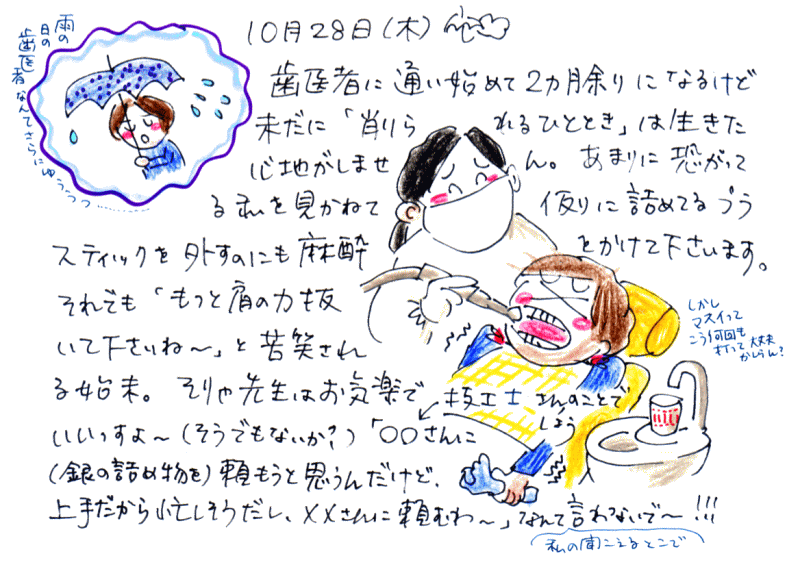 雨の
日の
歯医者なんてさらにゆううつつ…………
10月28日(木)
歯医者に通い始めて2カ月余りになるけど
未だに「削りられるひととき」は生きた
心地がしません。あまりに恐がって
る私を見かねて仮りに詰めてるプラ
スティックを外すのにも麻酔をかけて下さいます。
それでも「もっと肩の力抜
いて下さいね〜」と苦笑され
る始末。そりゃ先生はお気楽で
いいっすよ〜(そうでもないか?)「○○さんに
(銀の詰め物を)頼もうと思うんだけど、
上手だから忙しそうだし、××さんに頼むわ〜」なんて言わないで〜!!!
技工士さんのことで
しょう
私の聞こえるとこで
しかし
マスイって
こう何回も
打って大丈夫
かしらん?